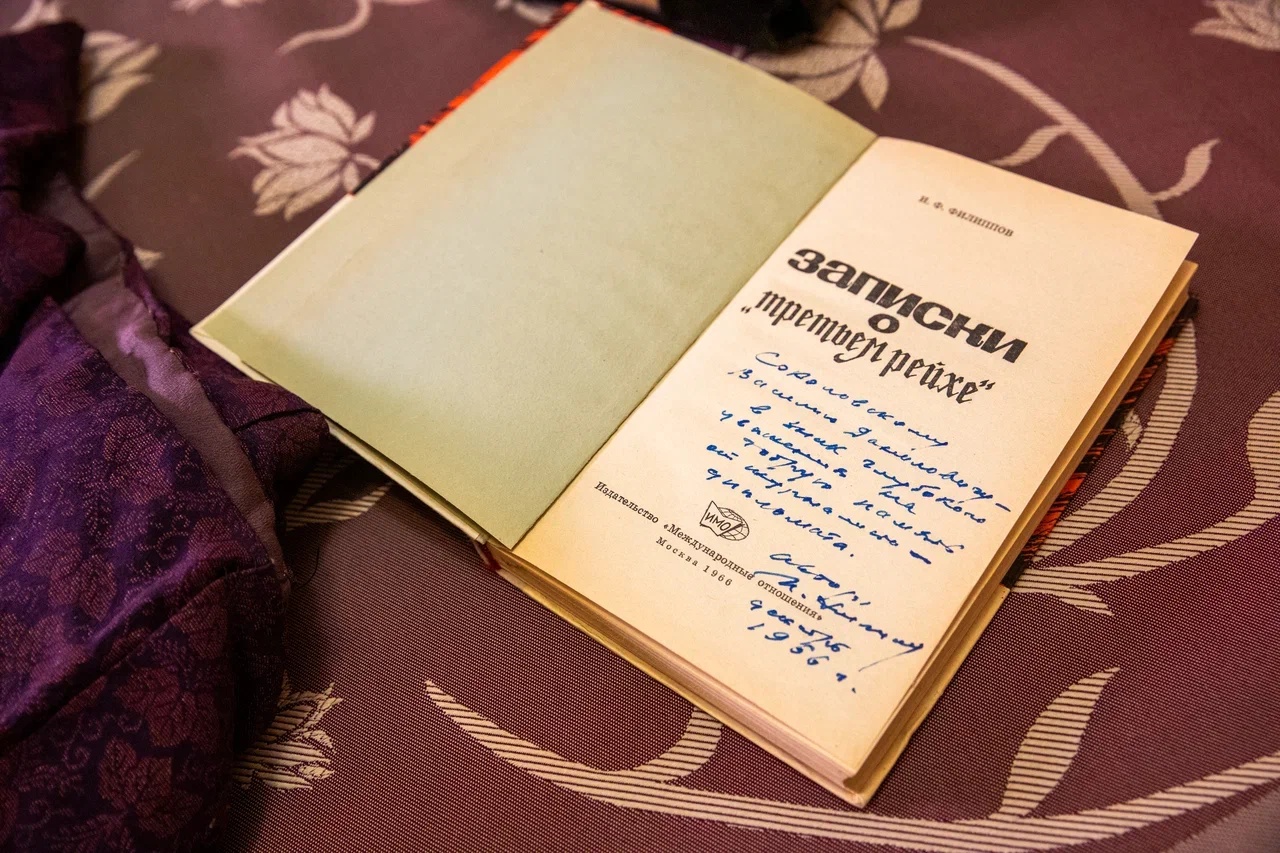 И. Ф. ФИЛИППОВ
записки
о
„третьем рейхе“
Соколовскому
Василию Даниловичу
в знак глубокого
уважения и на
добрую память
от журналиста –
дипломата.
ИМО
Издательство «Международные отношения»
Москва 1966
Автор:
И. Филиппов
декабрь
1966 г.